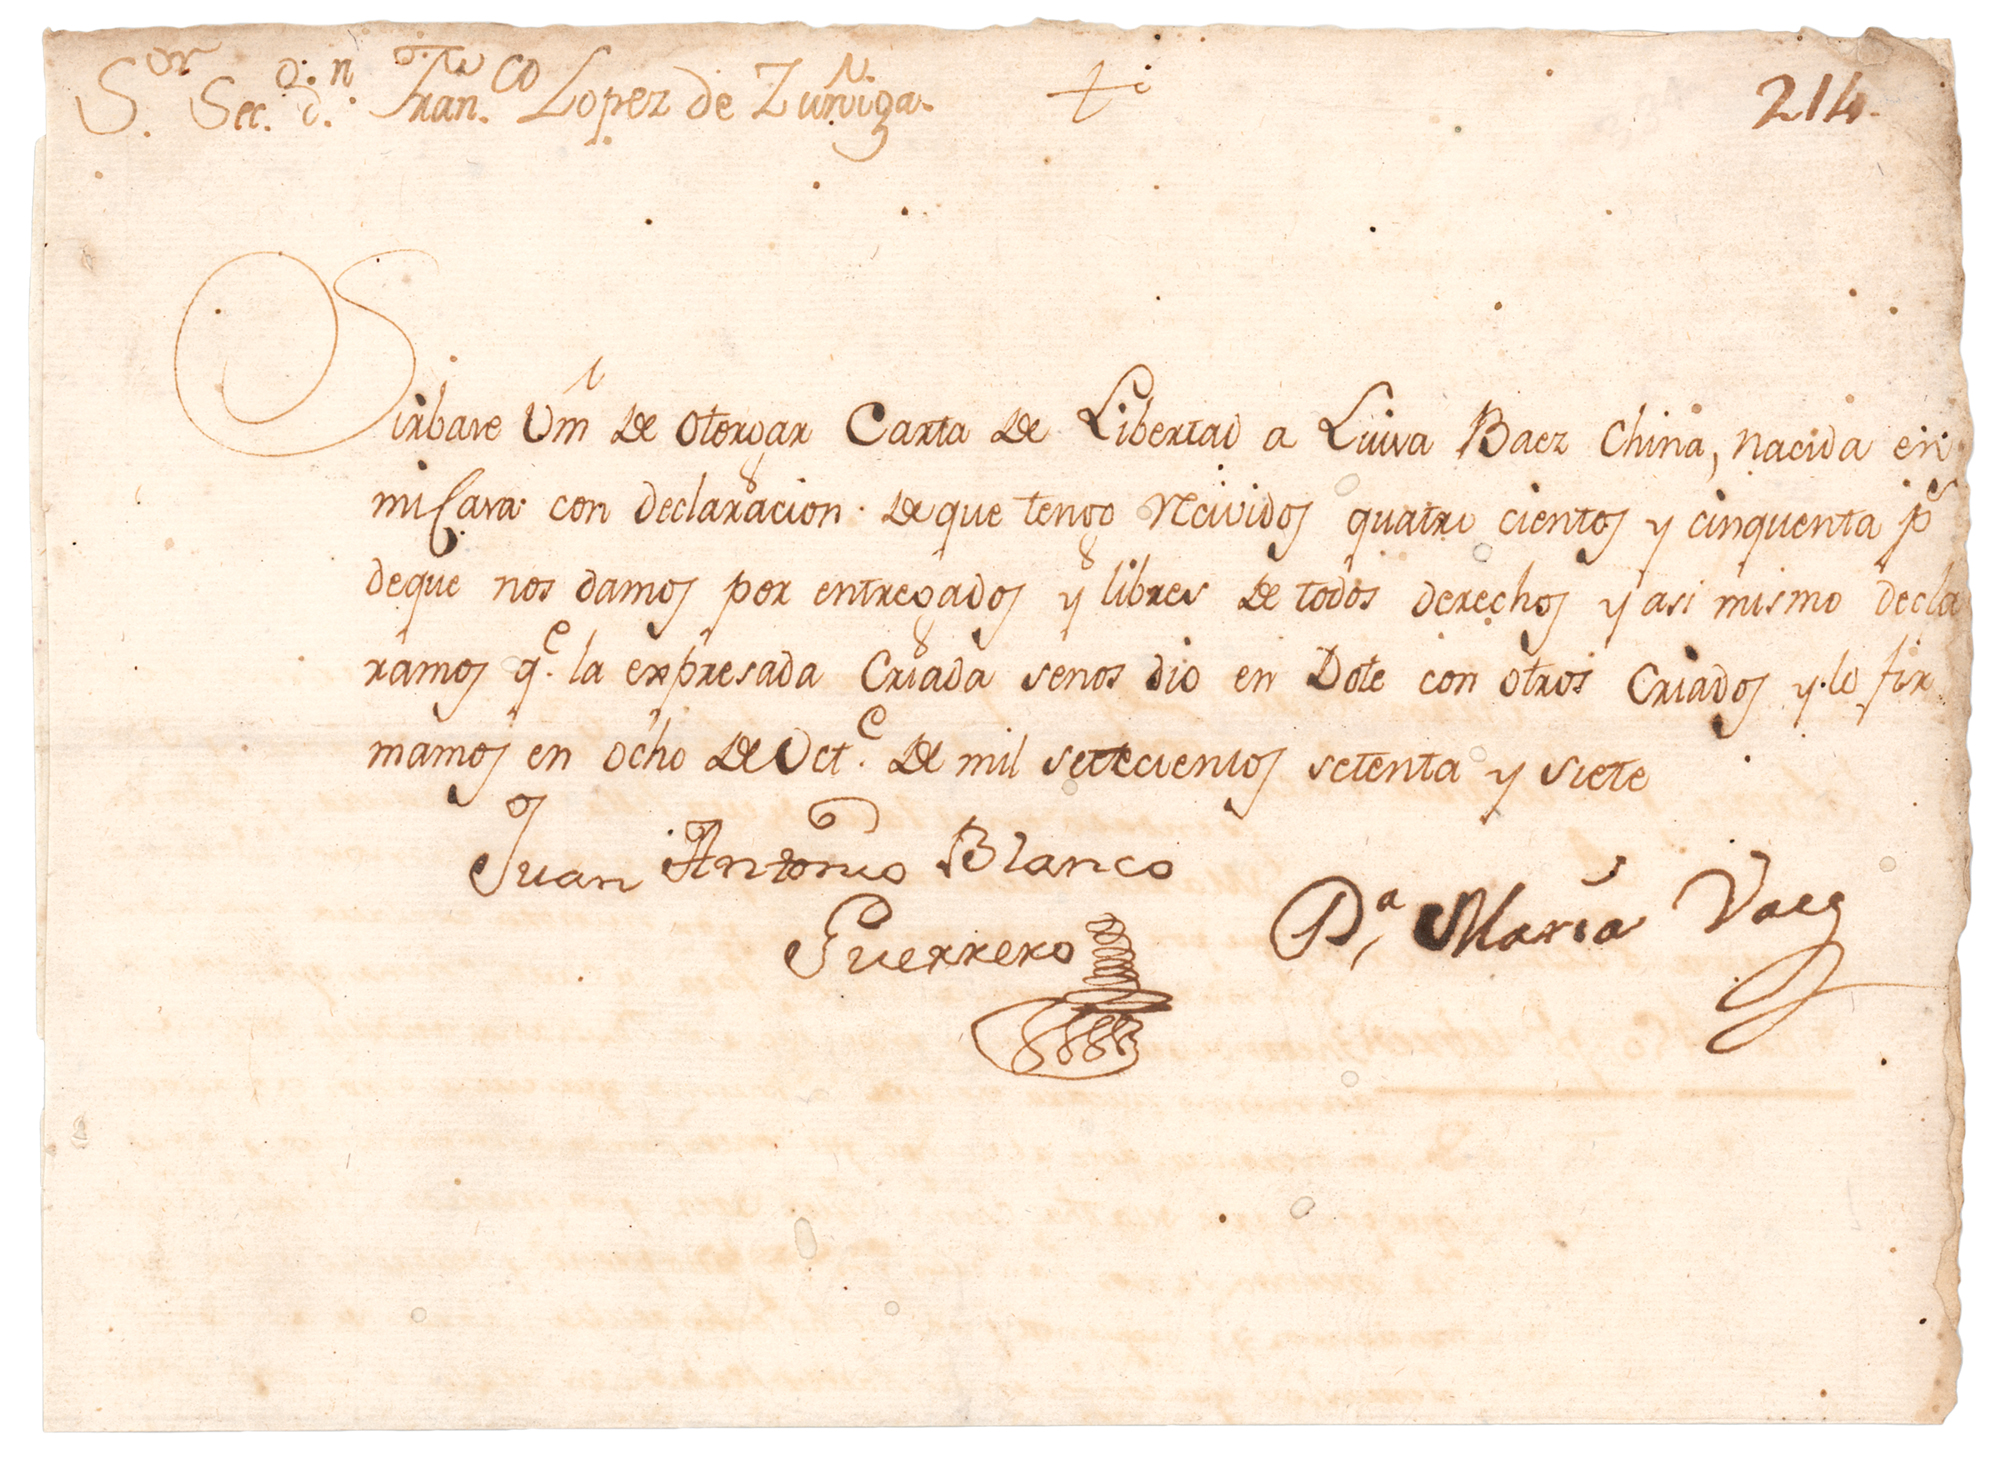 S.or Sec. d.n Fran.co Lopez de Zuñiga.
214.
Sirbase Vm de otorgar Carta de Libertad a Luisa Baez China, nacida en
mi Casa con declaracion de que tengo recividos quatro cientos y cinquenta ps
deque nos damos por entregados y libres de todos derechos y asi mismo decla
ramos q.e la expresada Criada senos dio en Dote con otros Criados y lo fir
mamos en ocho de Oct.e de mil setecientos setenta y siete
Juan Antonio Blanco
Guerrero
D.a Maria Vaez